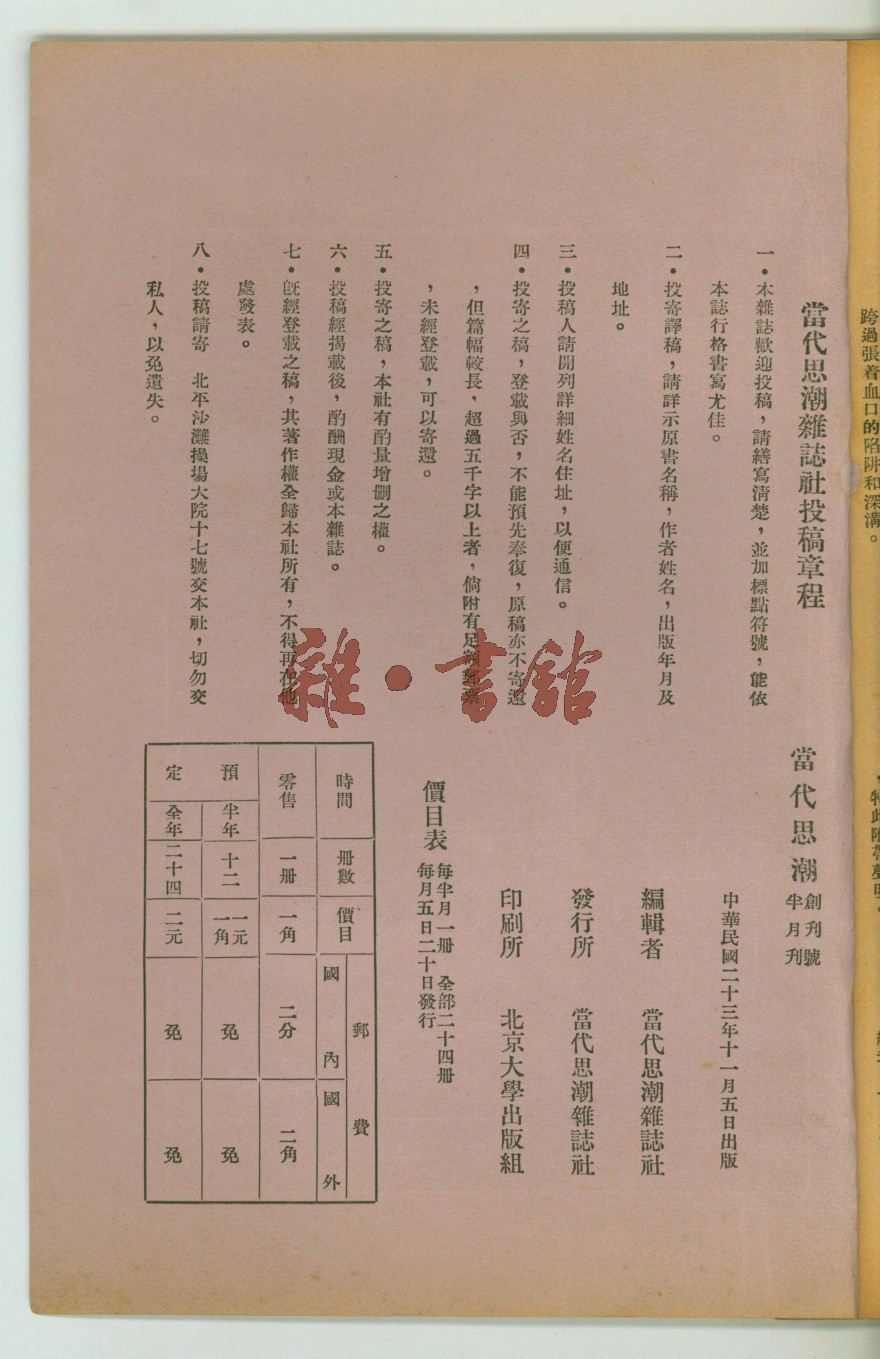 跨過張着血口的陷阱和深溝。
當代思潮雜誌社投稿章程
一・本雜誌歡迎投稿，請繕寫淸楚，並加標點符號，能依
本誌行格書寫尤佳。
二・投寄譯稿，請詳示原書名稱，作者姓名，出版年月及
地址。
三・投稿人請開列詳細姓名住址，以便通信。
四・投寄之稿，登載與否，不能預先奉復，原稿亦不寄還
，但篇幅較長，超過五千字以上者，倘附有足額郵票
，未經登載，可以寄還。
五・投寄之稿，本社有酌量增删之權。
六・投稿經揭載後，酌酬現金或本雜誌。
七・旣經登載之稿，其著作權全歸本社所有，不得再在他
處發表。
八・投稿請寄　北平沙灘操場大院十七號交本社，切勿交
私人，以免遺失。
當代思潮
創刊號
半月刊
中華民國二十三年十一月五日出版
編輯者　當代思潮雜誌社
發行所　當代思潮雜誌社
印刷所　北京大學出版組
價目表
每半月一冊　全部二十四冊
每月五日二十日發行
時間　冊數　價目　郵費　國內　國外
零售　一冊　一角　二分　二角
預定　半年　十二　一元一角　免　免
全年　二十四　二元　免　免
雜・書館